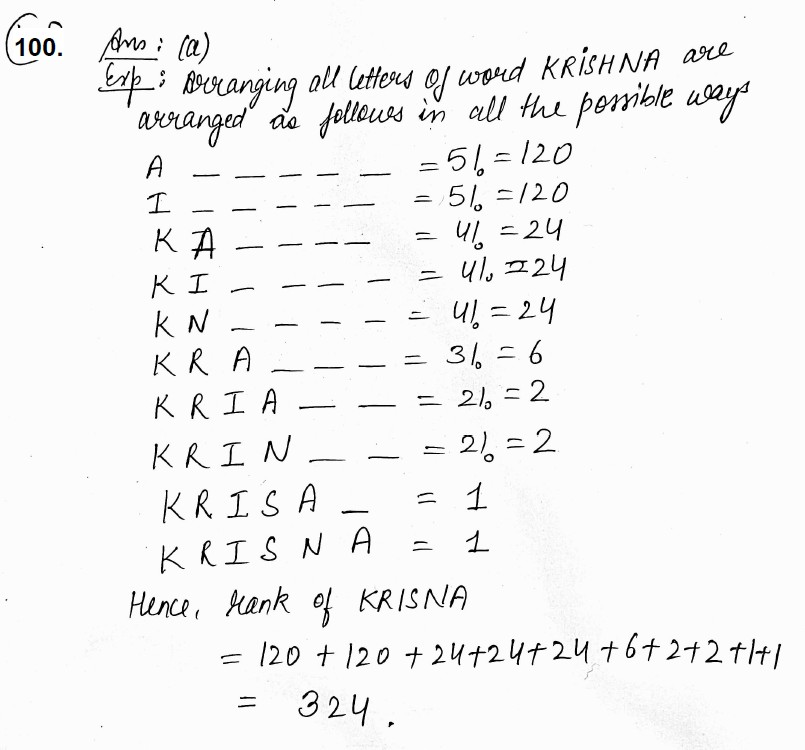 100. Ans : (a)
Exp : Arranging all letters of word KRISHNA are
arranged as follows in all the possible ways
A _ _ _ _ _ = 5! = 120
I _ _ _ _ _ = 5! = 120
K A _ _ _ _ = 4! = 24
K I _ _ _ _ = 4! = 24
K N _ _ _ _ = 4! = 24
K R A _ _ _ = 3! = 6
K R I A _ _ = 2! = 2
K R I N _ _ = 2! = 2
K R I S A _ = 1
K R I S N A = 1
Hence, Rank of KRISNA
= 120 + 120 + 24+24+24 + 6+2+2+1+1
= 324.